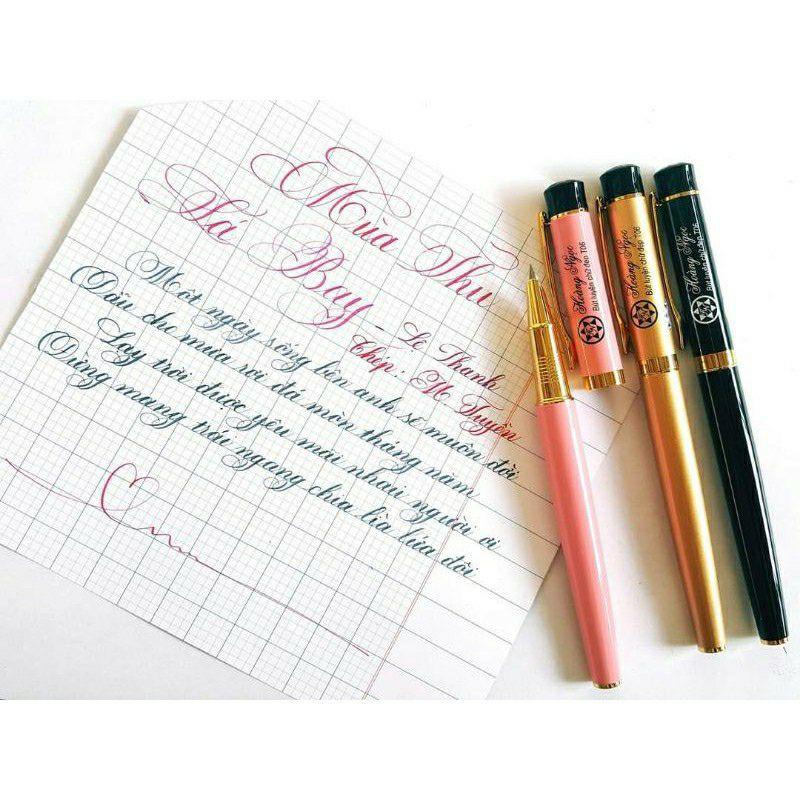 Mùa Thu
Lá Bay - Lệ Thanh
Chép: M Tuyền
Một ngày sống bên anh sẽ muôn đời
Dẫu cho mưa rơi đá mòn tháng năm
Lạy trời được yêu mãi nhau người ơi
Đừng mang trái ngang chia lìa lứa đôi
Hoàng Ngọc
Bút luyện chữ đẹp T06
Hoàng Ngọc
Bút luyện chữ đẹp T06
Hoàng Ngọc
Bút luyện chữ đẹp T06